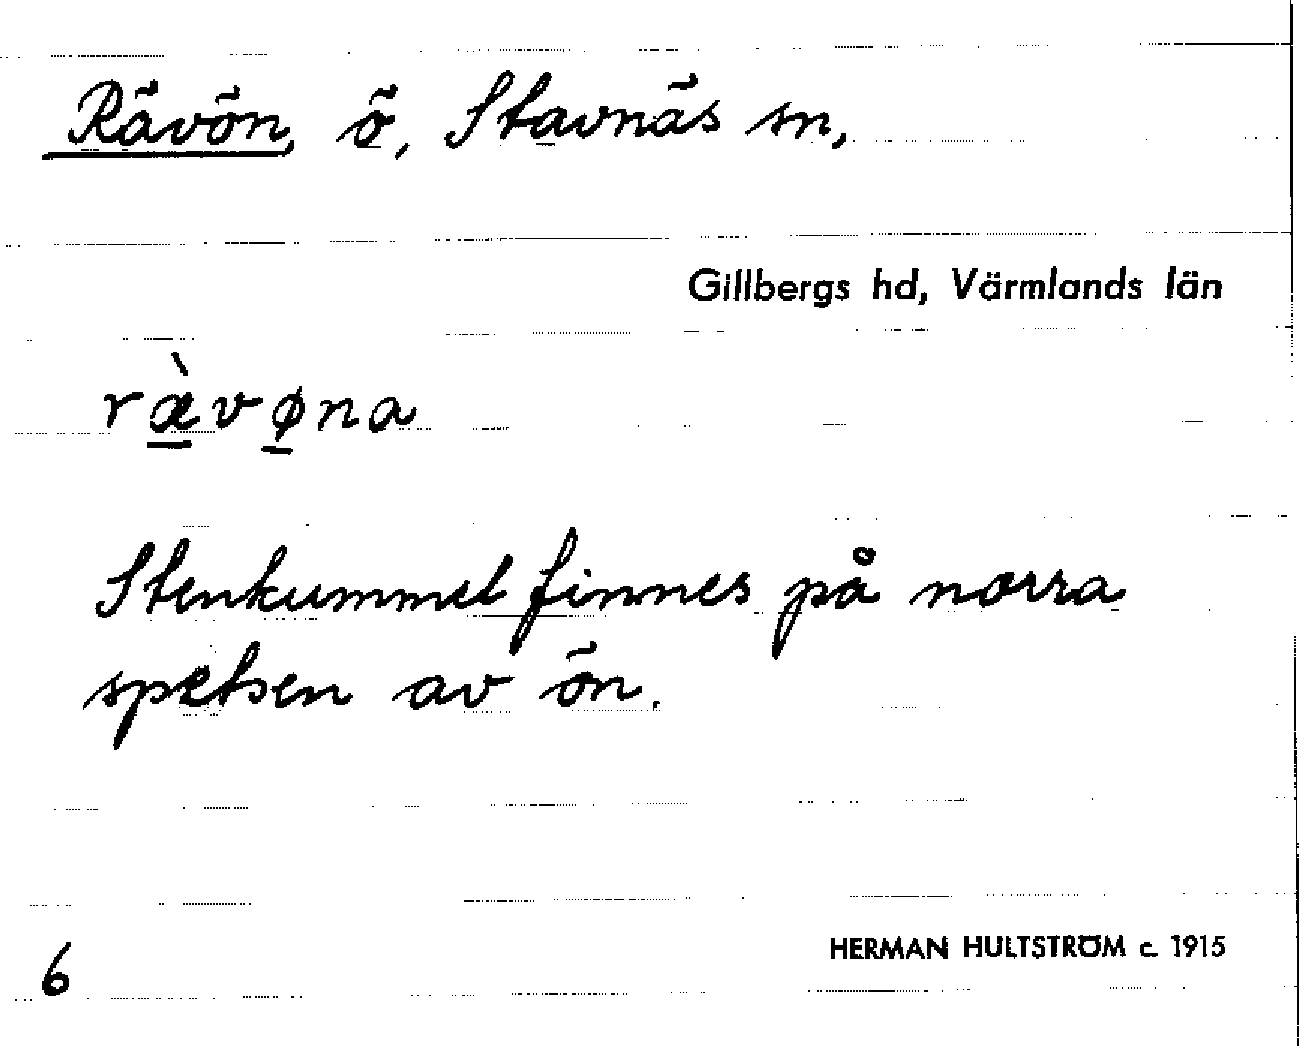 Rävön, ö, Stavnäs sn,
Gillbergs hd, Värmlands län
ræ̀vøna
Stenkummel finnes på norra
spetsen av ön.
6
HERMAN HULTSTRÖM c. 1915